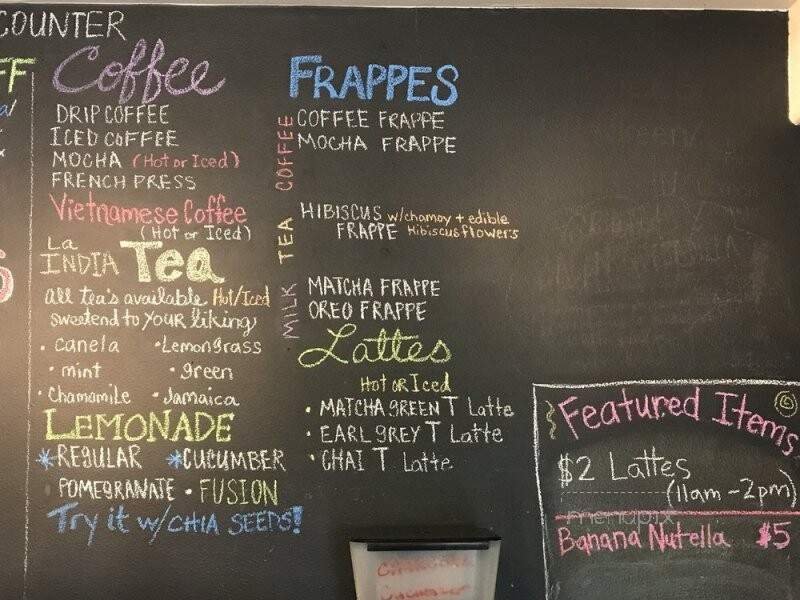 COUNTER
FF
Coffee
DRIP COFFEE
ICED COFFEE
MOCHA (Hot or Iced)
FRENCH PRESS
Vietnamese Coffee
(Hot or Iced)
La
INDIA Tea
all tea's available Hot/Iced
sweetend to YOUR liking
• canela • Lemongrass
• mint • green
• Chamomile • Jamaica
LEMONADE
*REGULAR *CUCUMBER
• POMEGRANATE • FUSION
Try it w/CHIA SEEDS!
FRAPPES
COFFEE
COFFEE FRAPPE
MOCHA FRAPPE
TEA
HIBISCUS w/chamoy + edible
FRAPPE Hibiscus flowers
MILK
MATCHA FRAPPE
OREO FRAPPE
Lattes
Hot or Iced
• MATCHA GREEN T Latte
• EARL GREY T Latte
• CHAI T Latte
Featured Items
$2 Lattes
(11am-2pm)
menupix
Banana Nutella $5